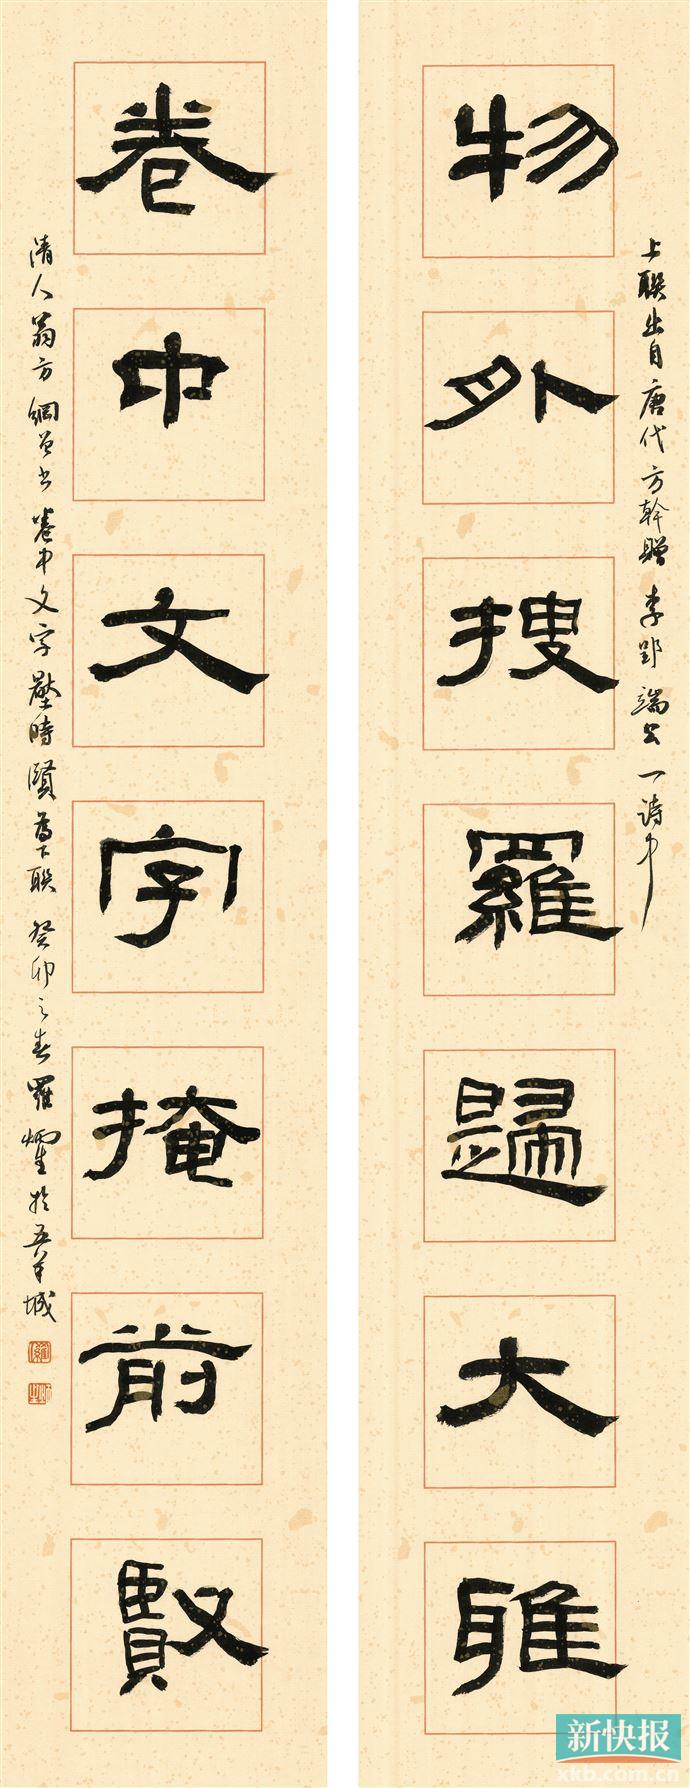 物外搜羅歸大雅
上聯出自唐代方幹贈李郢端公一詩中
卷中文字掩前賢
清人翁方綱曾書卷中文字壓時賢為下聯癸卯之春羅燿於五羊城
新快报
xkb.com.cn